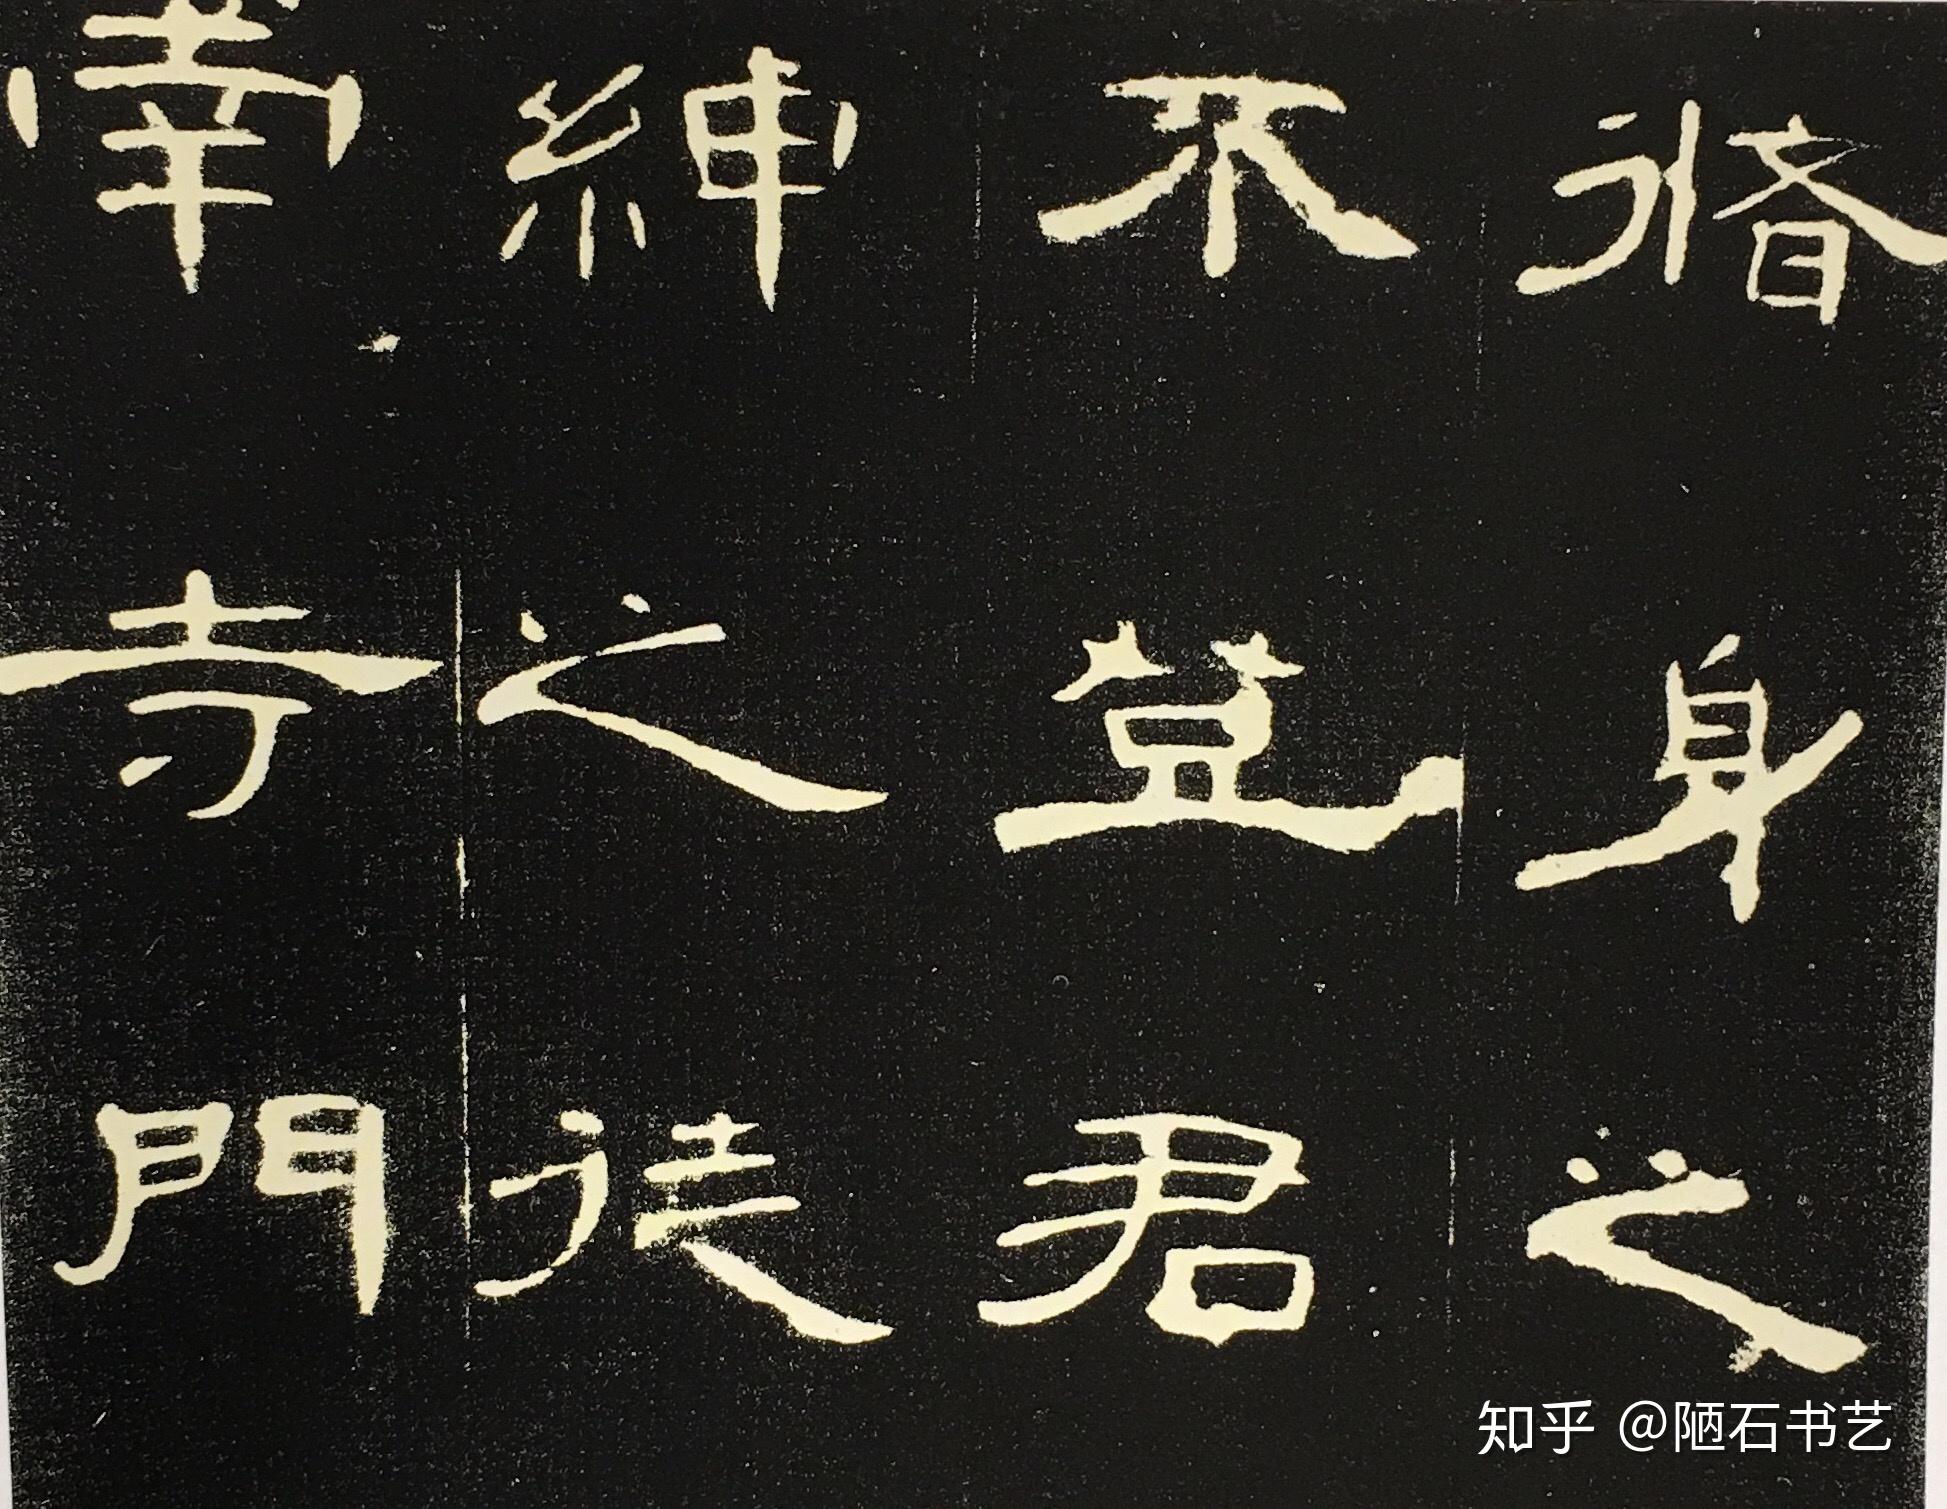 脩身之
不登君
紳之徒
寺門
知乎 @陋石书艺